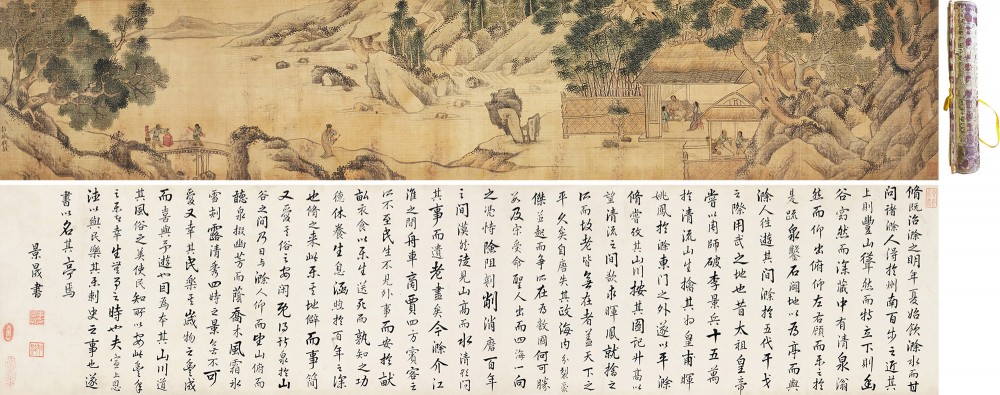 脩既治滁之明年夏始飲滁水而甘
問諸滁人得於州南百步之近其
上則豐山聳然而特立下則幽
谷窈然而深藏中有清泉滃
然而仰出俯仰左右顧而樂之於
是疏泉鑿石闢地以為亭而與
滁人往遊其間滁於五代干戈
之際用武之地也昔太祖皇帝
嘗以周師破李景兵十五萬
於清流山生擒其將皇甫暉
姚鳳於滁東門之外遂以平滁
脩嘗攷其山川按其圖記升高以
望清流之關欲求暉鳳就擒之
所而故老皆無在者蓋天下之
平久矣自唐失其政海內分裂豪
傑並起而爭所在為敵國何可勝
數及宋受命聖人出而四海一向
之馮恃險阻剗削消磨百年
之間漠然徒見山高而水清欲問
其事而遺老盡矣今滁介江
淮之間舟車商賈四方賓客之
所不至民生不見外事而安於畎
畝衣食以樂生送死而孰知之功
德休養生息涵煦於百年之深
也脩之來此樂其地僻而事簡
又愛其俗之安閑既得斯泉於山
谷之間乃日與滁人仰而望山俯而
聽泉掇幽芳而蔭喬木風霜冰
雪刻露清秀四時之景無不可
愛又幸其民樂其歲物之豐成
而喜與予遊也因為本其山川道
其風俗之美使民知所以安此豐年
之樂者幸生無事之時也夫宣上恩
德以與民樂其樂刺史之事也遂
書以名其亭焉
景晟書